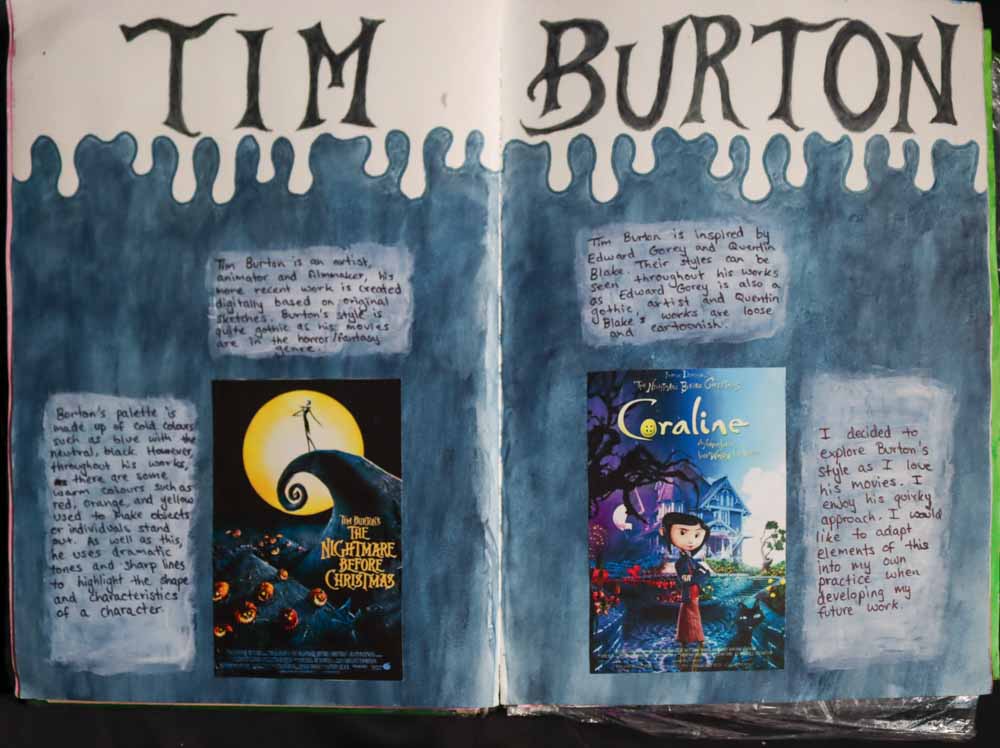 TIM BURTON
Tim Burton is an artist,
animator and filmmaker, his
more recent work is created
digitally based on original
sketches. Burton's style is
quite gothic as his movies
are in the horror/fantasy
genre.
Burton's palette is
made up of cold colours
such as blue with the
neutral, black. However,
throughout his works,
there are some
warm colours such as
red, orange, and yellow
used to make objects
or individuals stand
out. As well as this,
he uses dramatic
tones and sharp lines
to highlight the shape
and characteristics
of a character.
TIM BURTON'S
THE
NIGHTMARE
BEFORE
CHRISTMAS
Tim Burton is inspired by
Edward Gorey and Quentin
Blake. Their styles can be
seen throughout his works
as Edward Gorey is also a
gothic artist and Quentin
Blake's works are loose
and cartoonish.
THE NIGHTMARE BEFORE CHRISTMAS
Coraline
I decided to
explore Burton's
style as I love
his movies. I
enjoy his quirky
approach. I would
like to adapt
elements of this
into my own
practice when
developing my
future work.